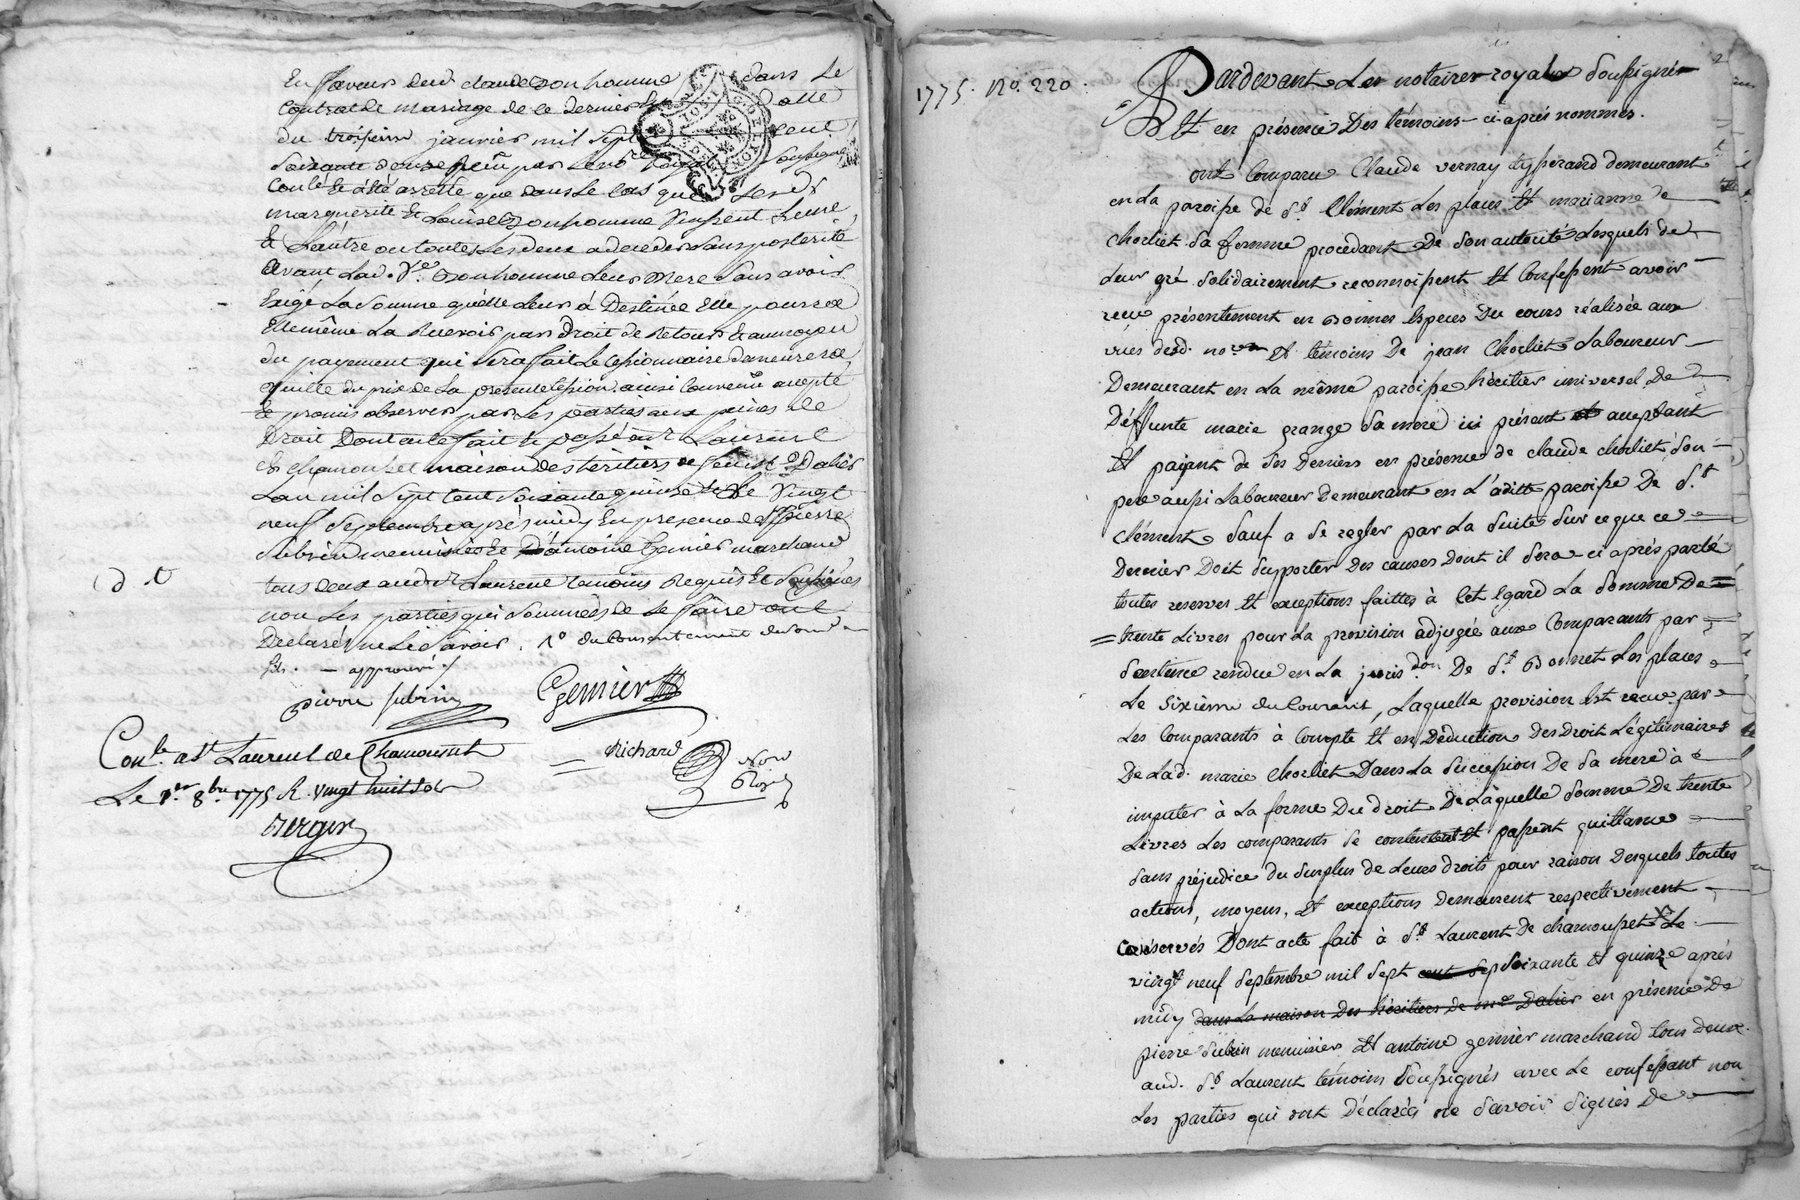 En faveur dud. claude Bonhomme dans le
contrat de mariage de ce dernier
du troisieme janvier mil sept cent
soixante douze reçu par le no.re royal soussigné
Con.lé Et a été arretté que dans le cas que lesd.
marguerite Et Louise Bonhomme vinssent L'une
Et L'autre ou toutes les deux a deceder sans posterité
avant lad. V.e Bonhomme leur mere sans avoir
Exigé La somme qu'elle leur a Destinée Elle pourra
Elle même La Recevoir par Droit de Retour Et au moyen
du payement qui sera fait le cessionnaire demeurera
quitte du prix de la presente cession. ainsi convenu accepté
Et promis observer par les parties aux peines de
Droit Dont acte fait Et passé a S.t Laurent
de chamousset maison des héritiers de feu M.e Dalier
L'an mil sept cent soixante quinze Et Le vingt
neuf septembre après midy En presence de S.r pierre
Subrin menuisier Et D'antoine Gernier marchand
tous deux aud. S.t Laurent temoins Requis Et soussignés
non les parties qui sommées de le faire ont
Declaré ne le sçavoir. 1.o du consentement
approuvé
pierre subrin Gernier
Con.lé a S.t Laurent de Chamousset Richard Not.
Le 1.er 8.bre 1775 R. vingt huit sols Royal
Berger
1775. No. 220. Pardevant Les notaires royal soussignés
Et en présence Des témoins ci après nommés.
ont Comparu Claude vernay tisserand demeurant
en La paroisse de S.t Clément Les places Et marianne
chorliet sa femme procedant De son autorité Lesquels de
Leur gré solidairement reconnoissent Et Confessent avoir
reçu présentement en Bonnes Especes Du cours réalisée aux
vües desd. no.re Et témoins De jean Chorliet Laboureur
Demeurant en La même paroisse héritier universel De
Deffunte marie grange sa mere ici présent et acceptant
Et paÿant de ses Deniers en présence de claude chorliet son
pere aussi Laboureur Demeurant en L'aditte paroisse De S.t
Clément sauf a se regler par La suite sur ce que ce
Dernier Doit supporter Des causes Dont il sera ci après parlé
toutes reserves Et exceptions faittes à Cet Egard La somme De
trente Livres pour La provision adjugée aux Comparants par
sentence rendue en La juris.don De S.t Bonnet Les places
Le sixieme du Courant, Laquelle provision Est reçue par
Les Comparants à Compte Et en Déduction Des Droit Légitimaires
De Lad. marie chorliet Dans La succession De sa mere à
imputer à La forme Du droit De Laquelle somme De trente
Livres Les comparants se contentent Et passent quittance
sans préjudice du surplus de Leurs droits pour raison Desquels toutes
actions, moyens, Et exceptions Demeurent respectivement
conservés Dont acte fait à S.t Laurent De chamousset Le
vingt neuf septembre mil sept cent soixante Et quinze après
midy dans La maison Des héritiers de m.e Dalier en présence De
pierre subrin menuisier Et antoine gernier marchand tous deux
aud. S.t Laurent témoins soussignés avec Le confessant non
Les parties qui ont Déclarés ne savoir signer De